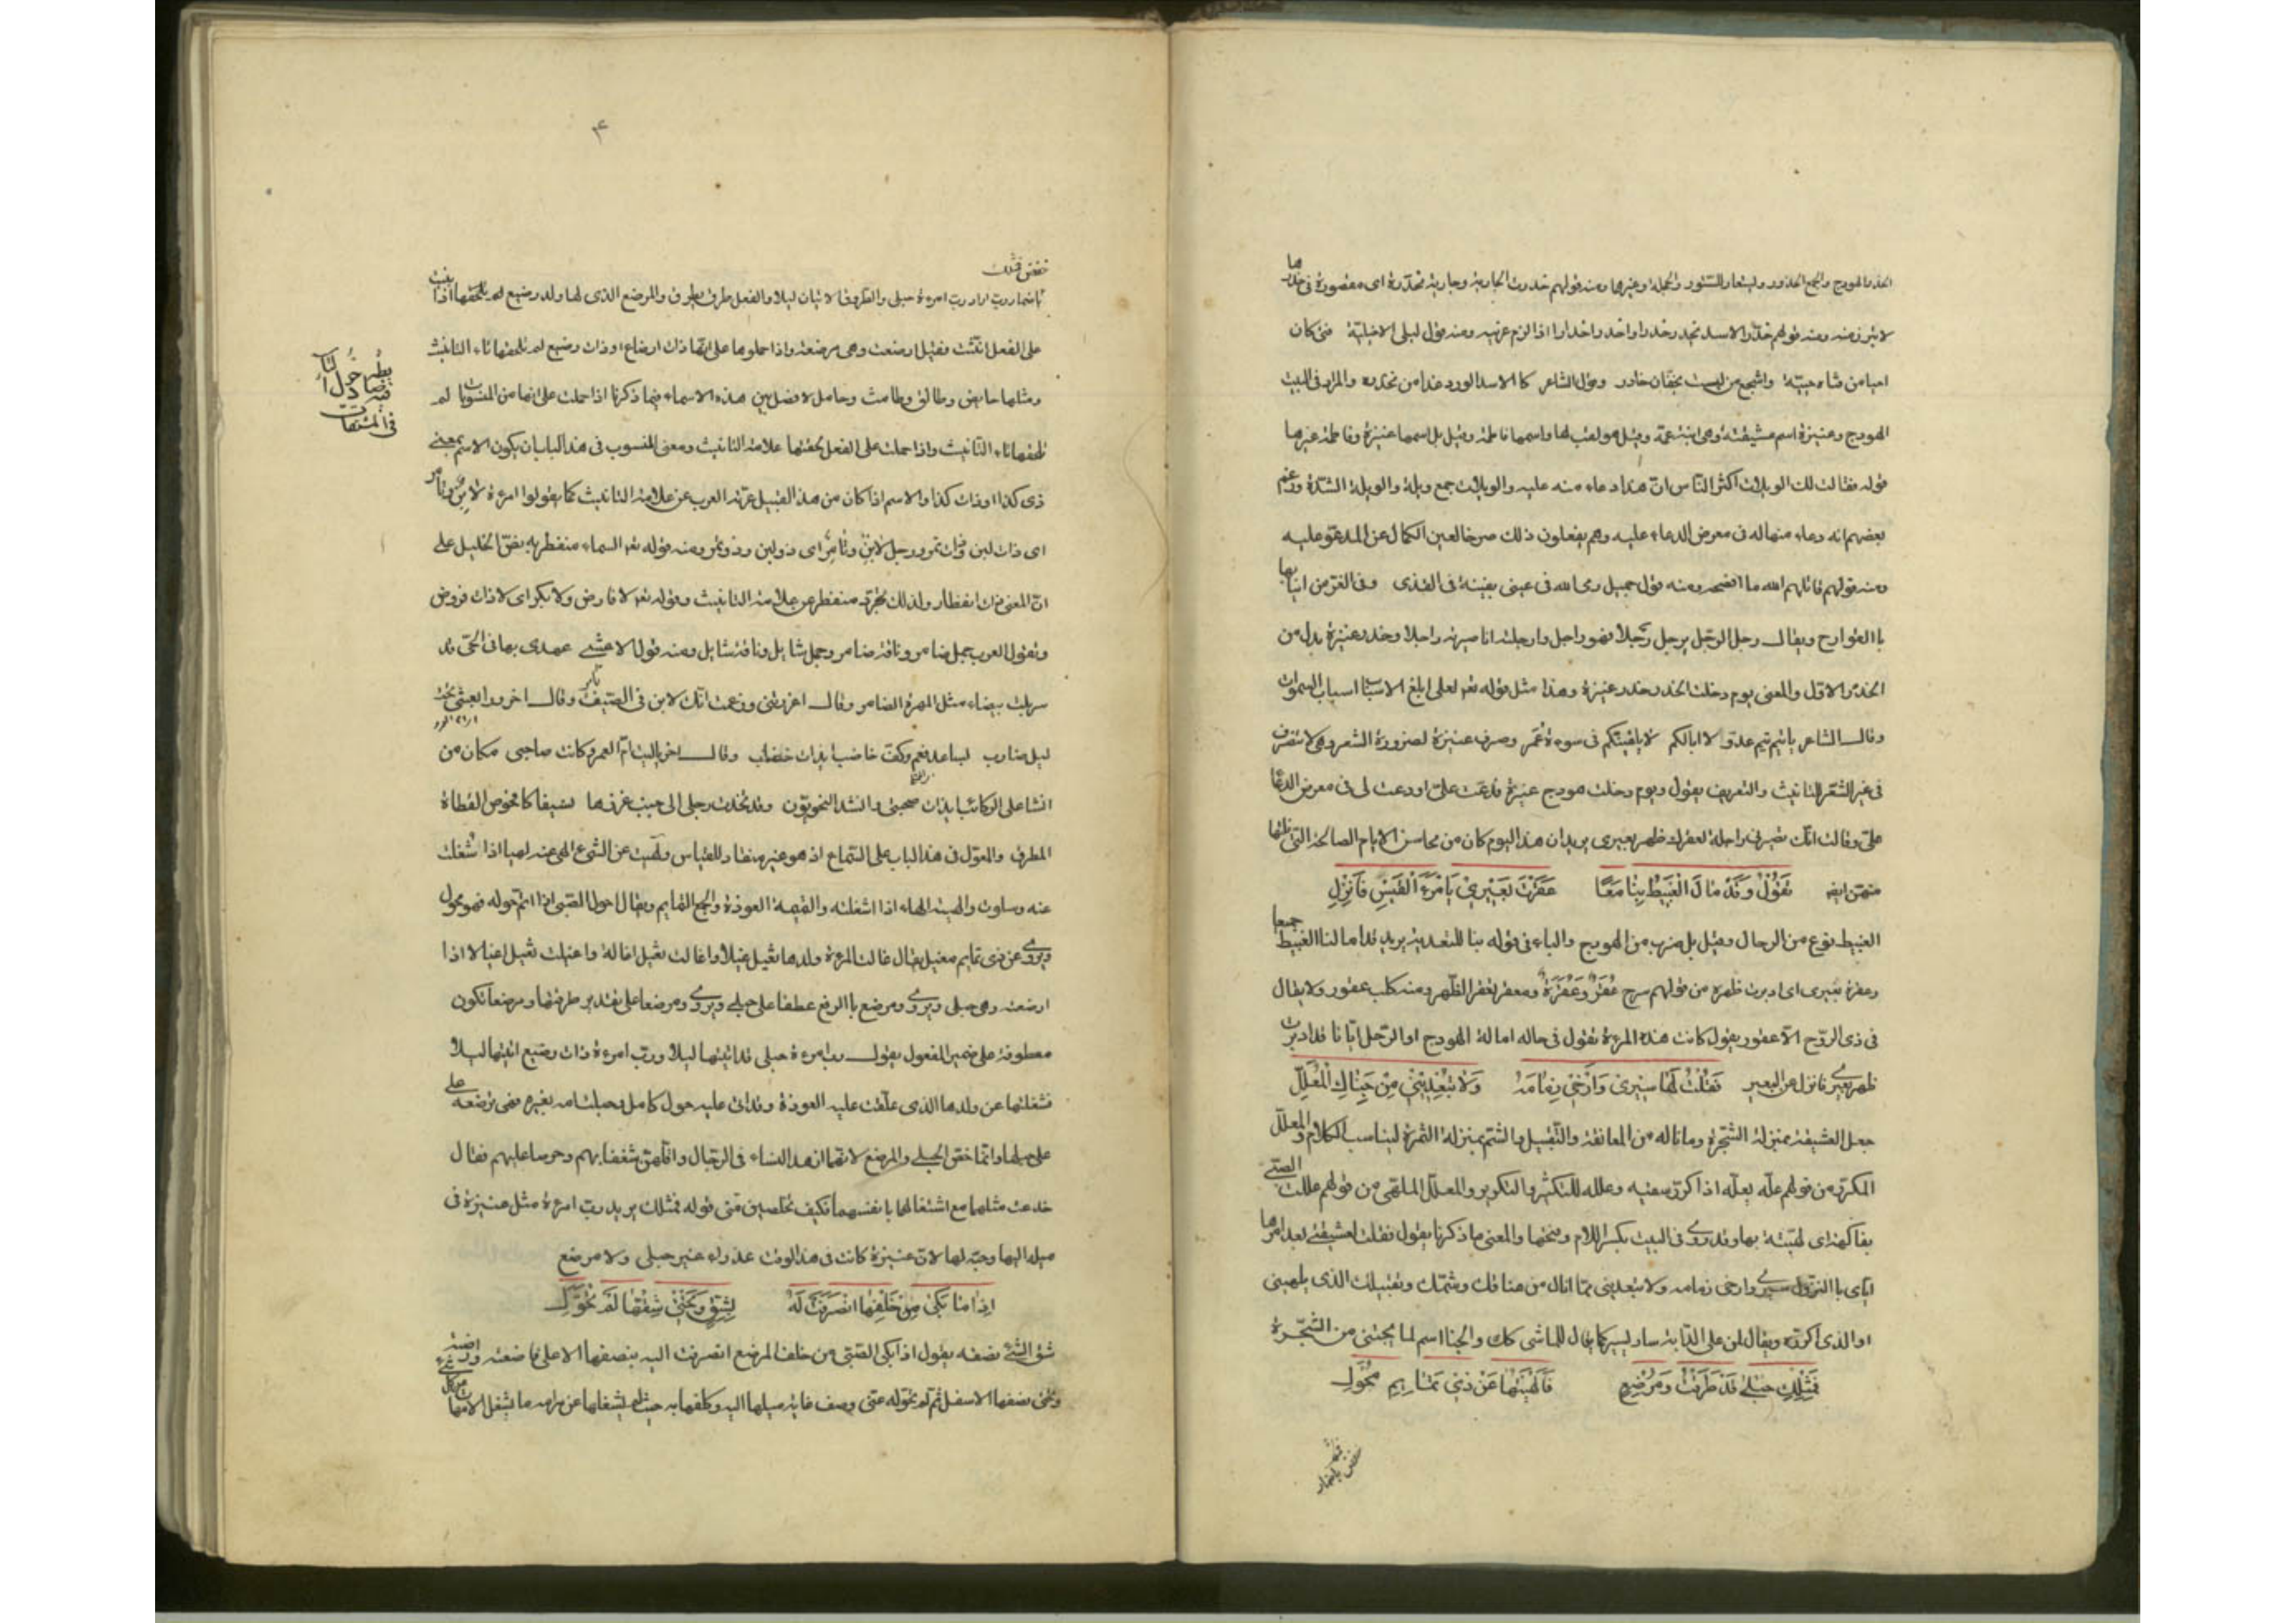 الخدر الهودج والجمع الخدور ويستعار للستور والحجلة وغيرها ومنه قولهم خدرت الجارية وجارية مخدرة اى مقصورة فى خدرها
لا تبرز منه ومنه قولهم خدر الاسد يخدر خدرا واخدر اخدارا اذا لزم عرينه ومنه قول ليلى الاخيلية فتى كان
احيا من فتاة حييّة واشجع من ليث بخفان خادر وقول الشاعر كالاسد الورد غدا من مخدره والمراد فى البيت
الهودج وعنيزة اسم عشيقته وهى ابنة عمّه وقيل هو لقب لها واسمها فاطمة وقيل بل اسمها عنيزة وفاطمة غيرها
قوله فقالت لك الويلات اكثر الناس انّ هذا دعاء منه عليه والويلات جمع ويلة والويلة الشدّة وزعم
بعضهم انه دعاء منها له فى معرض الدعاء عليه وهم يفعلون ذلك صرفا لعين الكمال عن المدعوّ عليه
ومنه قولهم قاتلهم الله ما افصحهم ومنه قول جميل رمى الله فى عينى بثينة فى القذى وفى الغرّ من انيابها
باالقوادح ويقال رجل الرّجل يرجل رجلا فهو راجل وارجلته انا صيرته راجلا وخدر عنيزة بدل من
الخدر الاوّل والمعنى يوم دخلت الخدر خدر عنيزة وهذا مثل قوله تعه لعلى ابلغ الاسباب اسباب السموات
وقال الشاعر ياتيم تيم عدىّ لا ابالكم لا يلقينّكم فى سوءة عمر وصرف عنيزة لضرورة الشعر وهى لا تنصرف
فى غير الشعر للتانيث والتعريف يقول ويوم دخلت هودج عنيزة فدعت علىّ او دعت لى فى معرض الدعا
علىّ وقالت انّك تصيرنى راجلة لعقرك ظهر بعيرى يريد ان هذا اليوم كان من محاسن الايام الصالحة التى نالها
منهن ايضه تَقُولُ وَقَدْ مَالَ الْغَبيْطُ بِنَا مَعًا عَقَرْتَ بَعِيْرِيْ يَا امْرَءَ الْقَيْسِ فَانْزِلِ
الغبيط نوع من الرحال وقيل بل ضرب من الهودج والباء فى قوله بنا للتعدية يريد قد امالنا الغبيط جميعا
وعقرت بعيرى اى ادبرت ظهره من قولهم سرج عُقَرٌ وعُقَرَةٌ ومعقر لعقر الظهر ومنه كلب عقور ولا يقال
فى ذى الروح الّا عقور يقول كانت هذه المرءة تقول فى حاله امالة الهودج او الرّحل ايّانا قد ادبرت
ظهر بعيرى فانزل عن البعير فَقُلْتُ لَهَا سِيْرِى وَارْخِى زِمَامَهُ وَلَا تُبْعِدِيْنِيْ مِنْ جَنَاكِ الْمُعَلَّلِ
جعل العشيقة بمنزلة الشجرة وما ناله من المعانقة والتقبيل والشمّ بمنزلة الثمرة ليناسب الكلام والمعلّل
المكرّر من قولهم علّه يعلّه اذا كرّر سقيه وعلله للتكثير والتكرير والمعلّل الملهى من قولهم عللت الصّبى
بفاكهة اى لهيته بها وقد روى فى البيت بكسر اللام وفتحها والمعنى ما ذكرنا يقول فقلت لعشيقتى بعد امرها
ايّاى باالنزول سيرى وارخى زمامه ولا تبعدينى ممّا انال من عناقك وشمّك وتقبيلك الذى يلهينى
او الذى اكرّره ويقال لمن على الدابة سار يسير كما يقال للماشى كك والجنا اسم لما يجتنى من الشجرة
فَمِثْلِكِ حُبْلىٰ قَدْ طَرَقْتُ وَمُرْضِعٍ فَاَلْهَيْتُهَا عَنْ ذِيْ تَمَايِمِ مُحْوِلِ
خفض فمثلك
باضمار ربّ اراد ربّ امرءة حبلى والطروق الاتيان ليلا والفعل طرق يطرق والمرضع الذى لها ولد رضيع
على الفعل انّثت فقيل ارضعت وهى مرضعة واذا حملوها على انها ذات ارضاع او ذات رضيع لم تلحقها تاء التانيث
ومثلها حايض وطالق وطامث وحامل لا فصل بين هذه الاسماء فيما ذكرنا اذا حملت على انها من المنسوبات لم
تلحقها تاء التانيث واذا حملت على الفعل لحقتها علامة التانيث ومعنى المنسوب فى هذا الباب ان يكون الاسم بمعنى
ذى كذا او ذات كذا والاسم اذا كان من هذا القبيل عرّته العرب عن علامة التانيث كما يقولوا امرءة لابن وتامر
اى ذات لبن وذات تمر ورجل لابن وتامر اى ذو لبن وذو تمر ومنه قوله تعه السماء منفطر به نصّ الخليل على
انّ المعنى ذات انفطار ولذلك تجرّد منفطر عن علامة التانيث وقوله تعه لا فارض ولا بكر اى لا ذات فروض
وتقول العرب جمل ضامر وناقة ضامر وجمل شايل وناقة شايل ومنه قول الاعشى عهدى بها فى الحىّ قد
سربلت بيضاء مثل المهرة الضامر وقال اخر وغررتنى وزعمت انّك لابن فى الصّيف تامر
وقال اخر يا ليت امّ العمر وكانت صاحبى مكان من
انشا على الركائب وانشد النحويّون وقد تخذت رجلى الى جنب غرزها نسيفا كافحوص القطاة
المطرق والمعوّل فى هذا الباب على السّماع اذ هو غير منقاد للقياس ولهيت عن الشئ الهى عنه لهيا اذا شغلت
عنه وسلوت والهيته الهاء اذا اشغلته والتميمة العوذة والجمع التمايم ويقال احول الصّبى اذا اتمّ حوله فهو محول
ويروى عن ذى تمايم مغيل يقال غالت المرءة ولدها تغيل غيلا واغالت تغيل اغالة واغيلت تغيل اغيالا اذا
ارضعته وهى حبلى ويروى ومرضع باالرفع عطفا على حبلى ويروى ومرضعا على تقدير طرقتها ومرضعا تكون
معطوفة على ضمير المفعول يقول ربّ امرءة حبلى قد اتيتها ليلا وربّ امرءة ذات رضيع اتيتها ليلا
فشغلتها عن ولدها الذى علّقت عليه العوذة وقد اتى عليه حول كامل
على حبلها وانما خصّ الحبلى والمرضع لانهما ازهد النساء فى الرّجال واقلّهن شغفا بهم وحرصا عليهم فقال
خدعت مثلها مع اشتغالها بانفسهما فكيف تخلصين منّى قوله فمثلك يريد ربّ امرءة مثل عنيزة فى
ميله اليها وحبّه لها لانّ عنيزة كانت فى هذا الوقت عذراء غير حبلى ولا مرضع
اِذَا مَا بَكىٰ مِنْ خَلْفِهَا انْصَرَفَتْ لَهُ بِشِقٍّ وَتَحْتِيْ شِقُّهَا لَمْ تُحَوَّلِ
شق الشئ نصفه يقول اذا بكى الصّبى من خلف المرضع انصرفت اليه بنصفها الاعلى فارضعته
وتحتى نصفها الاسفل ثم لم تحوّله عنّى وصف غاية ميلها اليه وكلفها به حيث لم يشغلها عن مرامه ما يشغل الامهات